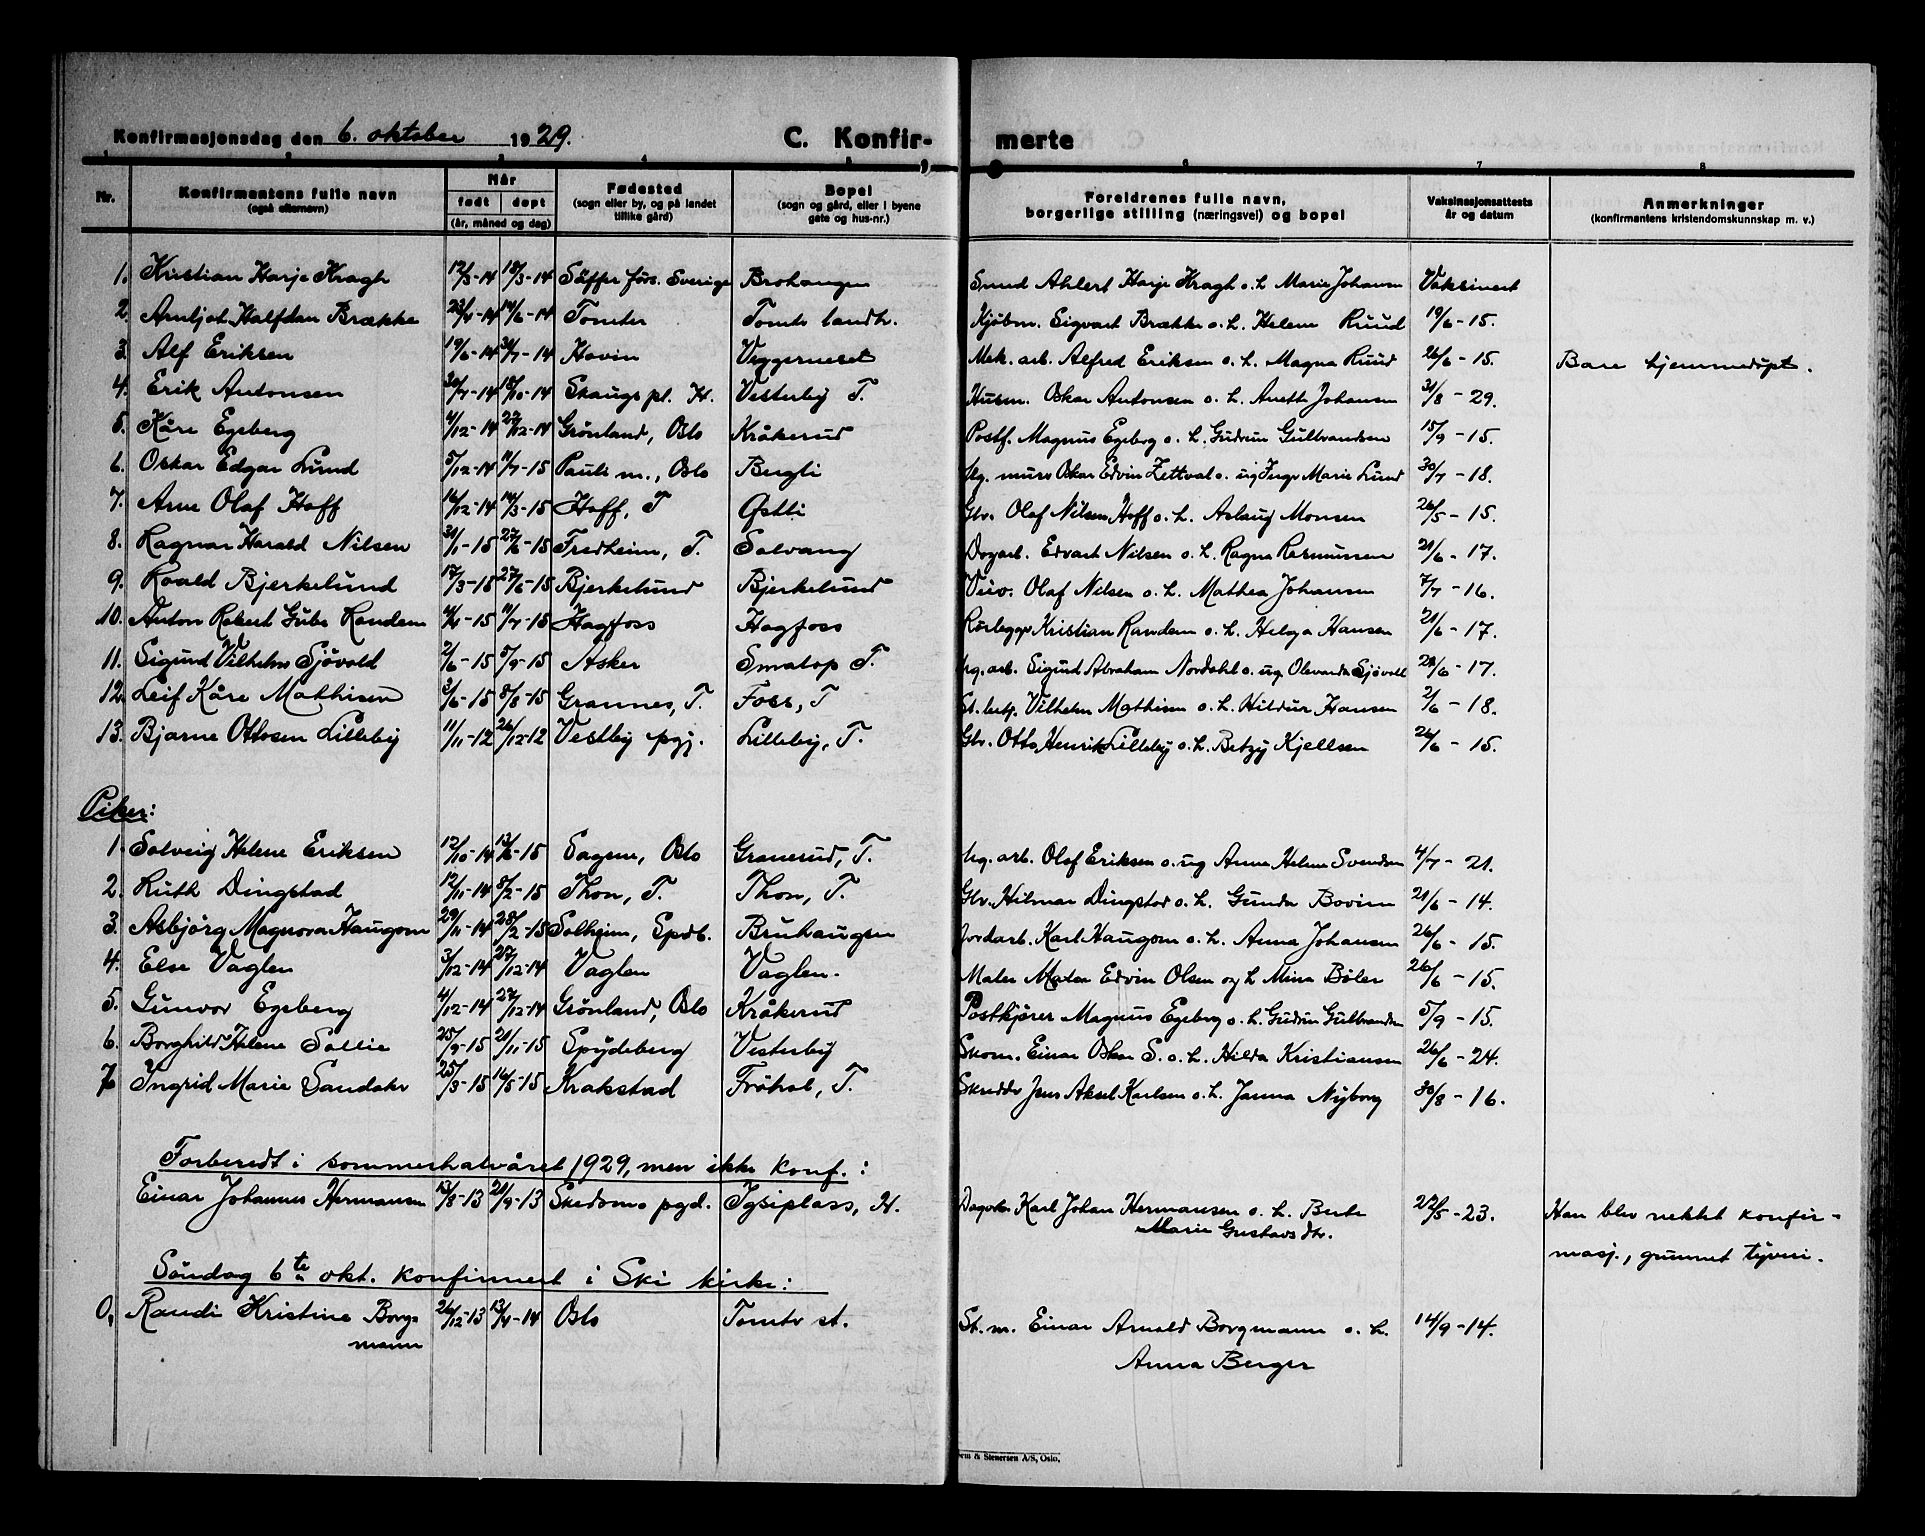 Konfirmasjonsdag den 6. oktober 1929. C. Konfir- merte
1 2 3 4 5 6 7 8
Nr. Konfirmantens fulle navn (også efternavn) Når født døpt (år, måned og dag) Fødested (sogn eller by, og på landet tillike gård) Bopel (sogn og gård, eller i byene gate og hus-nr.) Foreldrenes fulle navn, borgerlige stilling (næringsvei) og bopel Vaksinasjonsattests år og datum Anmerkninger (konfirmantens kristendomskunnskap m. v.)
1. Kristian Harje Kragh 12/3-14 18/3-14 Säffer förs. Sverige Brohaugen Smed Ahlert Harje Kragh o. h. Marie Johansen Vaksinert
2. Arnljot Halfdan Brække 23/4-14 14/6-14 Tomter Tomter landh. Kjøbm. Sigvart Brække o. h. Helene Ruud 19/6-15.
3. Alf Eriksen 19/6-14 Hovin Veggerneset Mek. arb. Alfred Eriksen o. h. Magna Ruud 26/6-15. Bare hjemmedøpt.
4. Erik Antonsen 30/7-14 18/10-14 Skaugs pl. H. Vesterby T. Husm. Oskar Antonsen o. h. Anette Johansen 31/8-29.
5. Kåre Egeberg 4/12-14 27/12-14 Grönland, Oslo Kråkerud Postf. Magnus Egeberg o. h. Gudrun Gulbrandsen 15/9-15.
6. Oskar Edgar Lund 5/12-14 11/7-15 Pauli m., Oslo Bugli Ug. murer Oskar Edvin Zettval o. ug Inga Marie Lund 30/7-18.
7. Arne Olaf Hoff 16/12-14 14/3-15 Hoff, T Østli Gbr. Olaf Nilsen Hoff o. h. Aslaug Monsen 26/5-15.
8. Ragnar Harald Nilsen 31/1-15 27/6-15 Fredheim, T. Solvang Dagarb. Edvart Nilsen o. h. Ragna Rasmussen 21/6-17.
9. Roald Bjerkelund 17/3-15 27/6-15 Bjerkelund Bjerkelund Olaf Nilsen o. h. Mathea Johansen 7/7-16.
10. Anton Robert Gube Randem 4/4-15 11/7-15 Hagfoss Hagfoss Rörlegger Kristian Randem o. h. Helga Hansen 21/6-17.
11. Sigurd Vilhelm Sjövold 2/6-15 5/9-15 Asker Smatop T. Ug. arb. Sigurd Abraham Nordahl o. ug. Olevanda Sjövold 21/6-17.
12. Leif Kåre Mathisen 3/6-15 8/8-15 Grannes, T. Foss, T St. betj. Vilhelm Mathisen o. h. Hildur Hansen 2/6-18.
13. Bjarne Ottosen Lilleby 11/11-12 26/12-12 Vestby pgj. Lilleby, T. Gbr. Otto Henrik Lilleby o. h. Betzy Kjellsen 26/6-15.
Piker:
1. Solveig Helene Eriksen 12/10-14 13/5-15 Sagene, Oslo Granerud, T. Ug. arb. Olaf Eriksen o. ug Anna Helene Svendsen 4/7-21.
2. Ruth Dingstad 12/11-14 8/2-15 Thon, T. Thon, T. Gbr. Hilmar Dingstad o. h. Gunda Bovim 21/6-14.
3. Asbjörg Magnora Haugom 29/11-14 28/2-15 Solheim, Spdb. Bruhaugen Jordarb. Karl Haugom o. h. Anna Johansen 26/6-15.
4. Else Vaglen 3/12-14 27/12-14 Vaglen Vaglen. Maler Maler Edvin Olsen og h Mina Böler 26/6-15.
5. Gunvor Egeberg 4/12-14 27/12-14 Grönland, Oslo Kråkerud Postkjörer Magnus Egeberg o. h. Gudrun Gulbrandsen 5/9-15.
6. Borghild Helene Sollie 25/9-15 21/11-15 Spydeberg Vesterby Skom. Einar Oskar S. o. h. Hilda Kristiansen 26/6-24.
7. Ingrid Marie Sandaker 25/3-15 16/5-15 Kråkstad Fröhol, T. Skredder Jens Aksel Karlsen o. h. Janna Nyborg 30/8-16.
Forberedt i sommerhalvåret 1929, men ikke konf.:
Einar Johannes Hermansen 13/8-13 21/9-13 Skedsmo pgd. Igsiplass, H. Dagarb. Karl Johan Hermansen o. h. Berte 22/5-23. Han blev nektet konfir-
Marie Gustavs dtr. masj., grunnet tyveri.
Söndag 6te okt. konfirmert i Ski kirke:
0, Randi Kristine Borg- 26/12-13 13/4-14 Oslo Tomter st. St. m. Einar Arnold Borgmann o. h. 14/9-14.
mann Anna Berger
& Stenersen A/S, Oslo.